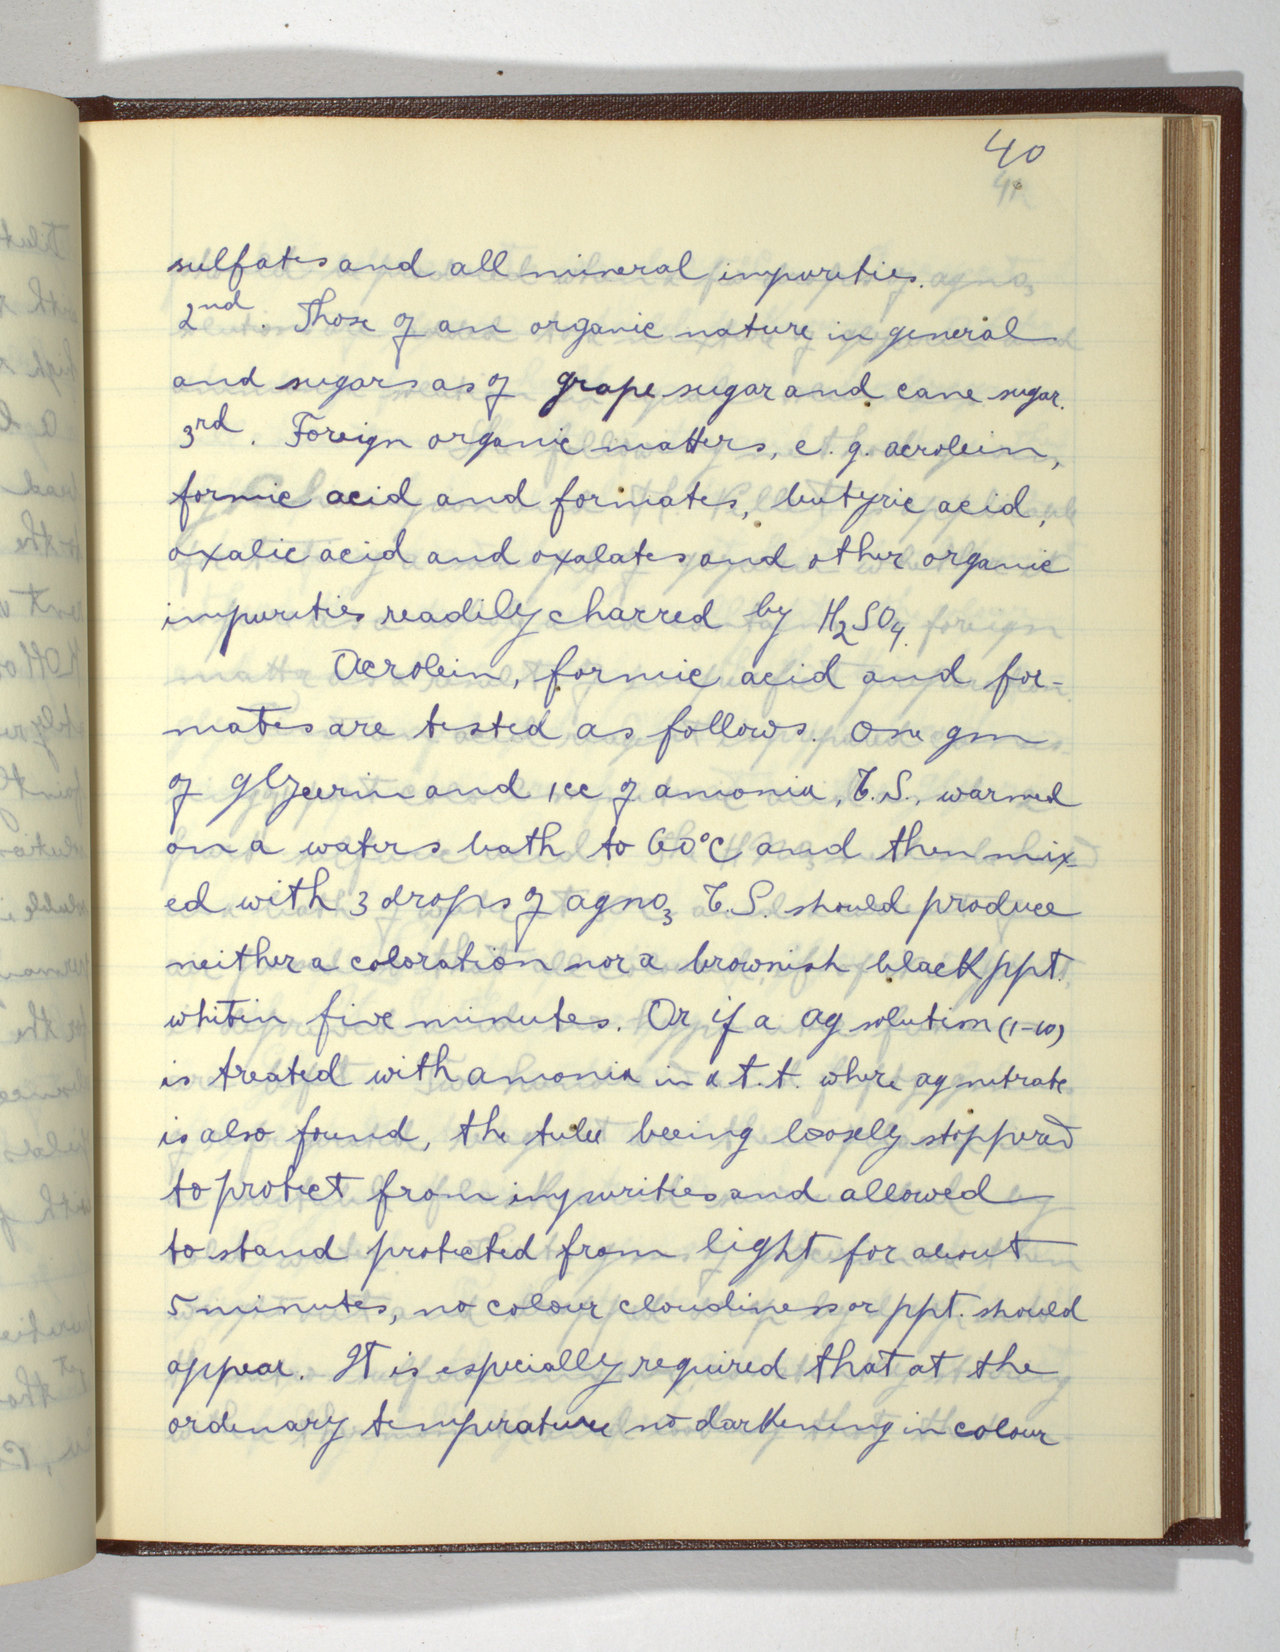 40
sulfates and all mineral impurities.
2nd. Those of an organic nature in general
and sugars as of grape sugar and cane sugar.
3rd. Foreign organic matters, e. g. acrolein,
formic acid and formates, butyric acid,
oxalic acid and oxalates and other organic
impurities readily charred by H₂SO₄.
Acrolein, formic acid and for-
mates are tested as follows. One gm
of glycerin and 1cc of amonia, T.S., warmed
on a waters bath to 60°C and then mix-
ed with 3 drops of agno₃ T.S. should produce
neither a coloration nor a brownish black ppt.
whitin five minutes. Or if a ag solution (1-10)
is treated with amonia in a t.t. where ag nitrate
is also found, the tube beeing loosely stoppered
to protect from impurities and allowed
to stand protected from light for about
5 minutes, no colour cloudiness or ppt. should
appear. It is especially required that at the
ordenary temperature no darkening in colour